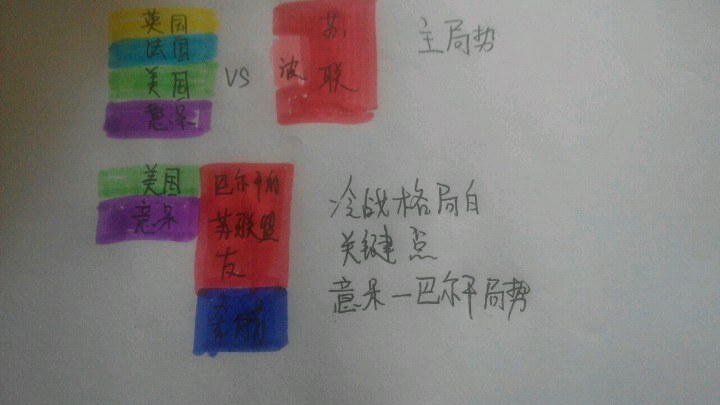 英国
法国
美国
意呆
VS
苏
波 联
主局势
美国
意呆
巴尔干的
苏联盟
友
冷战格局白
关键点
意呆一巴尔干局势